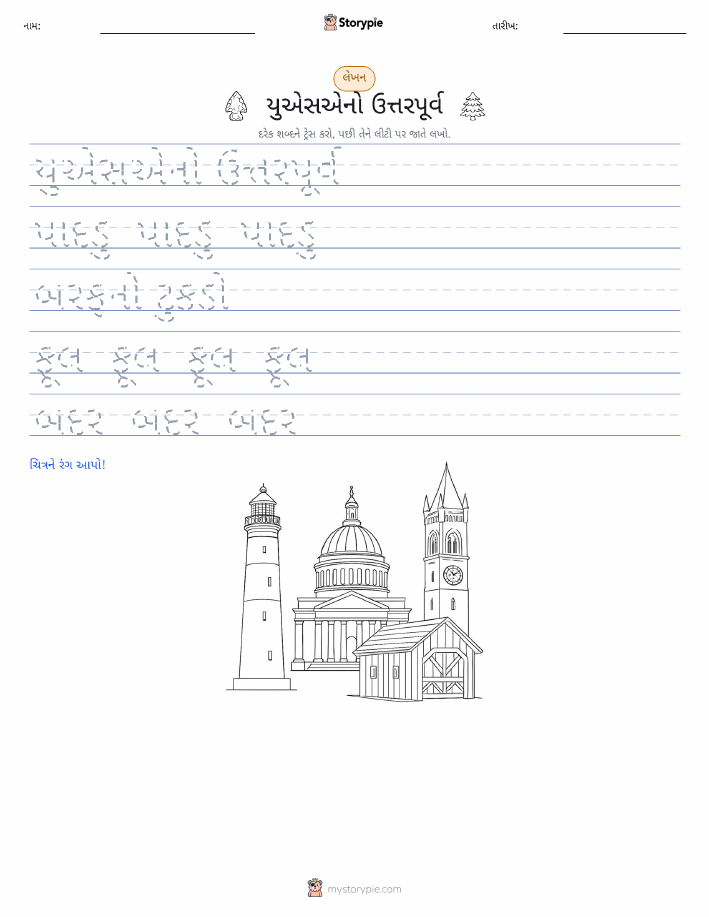 નામ:
Storypie
તારીખ:
લેખન
યુએસએનો ઉત્તરપૂર્વ
દરેક શબ્દને ટ્રેસ કરો, પછી તેને લીટી પર જાતે લખો.
યુએસએનો ઉત્તરપૂર્વ
પાદડુ પાદડુ પાદડુ
બરફનો ટુકડો
ફૂલ ફૂલ ફૂલ ફૂલ
બંદર બંદર બંદર
ચિત્રને રંગ આપો!
mystorypie.com